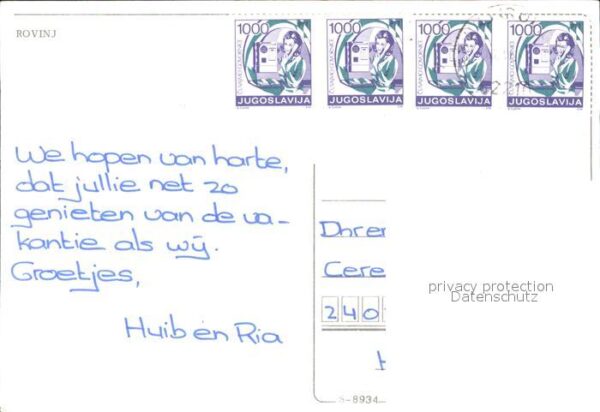 ROVINJ
1000 1000 1000 1000
JUGOSLAVIJA JUGOSLAVIJA JUGOSLAVIJA JUGOSLAVIJA
We hopen van harte,
dat jullie net zo
genieten van de va-
kantie als wij.
Groetjes,
Huib en Ria
Dhr en
Cere
privacy protection
Datenschutz
240
S-8934